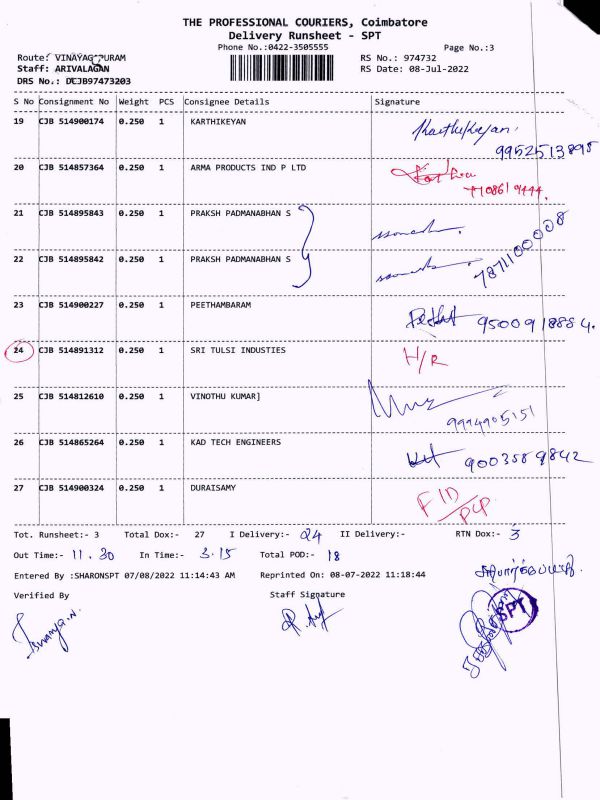 THE PROFESSIONAL COURIERS, Coimbatore
Delivery Runsheet - SPT
Phone No.:0422-3505555 Page No.:3
Route: VINAYAGAPURAM RS No.: 974732
Staff: ARIVALAGAN RS Date: 08-Jul-2022
DRS No.: DCJB97473203
S No Consignment No Weight PCS Consignee Details Signature
19 CJB 514900174 0.250 1 KARTHIKEYAN Karthikeyan.
9952513898
20 CJB 514857364 0.250 1 ARMA PRODUCTS IND P LTD
21 CJB 514895843 0.250 1 PRAKSH PADMANABHAN S
22 CJB 514895842 0.250 1 PRAKSH PADMANABHAN S 7871100008
23 CJB 514900227 0.250 1 PEETHAMBARAM 9500918884.
24 CJB 514891312 0.250 1 SRI TULSI INDUSTIES H/R
25 CJB 514812610 0.250 1 VINOTHU KUMAR]
9994905151
26 CJB 514865264 0.250 1 KAD TECH ENGINEERS 9003589842
27 CJB 514900324 0.250 1 DURAISAMY
Tot. Runsheet:- 3 Total Dox:- 27 I Delivery:- 24 II Delivery:- RTN Dox:- 3
Out Time:- 11.30 In Time:- 3.15 Total POD:- 18
Entered By :SHARONSPT 07/08/2022 11:14:43 AM Reprinted On: 08-07-2022 11:18:44
Verified By Staff Signature
SPT